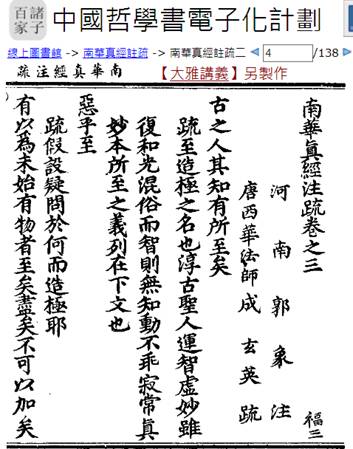 諸子百家
中國哲學書電子化計劃
線上圖書館 -> 南華真經註疏 -> 南華真經註疏二 4 /138
南華真經註疏
【大雅講義】另製作
南華真經注疏卷之三 福三
河南郭象注
唐西華法師成玄英疏
古之人其知有所至矣
疏至造極之名也淳古聖人運智虛妙雖
復和光混俗而智則無知動不乖寂常真
妙本所至之義列在下文也
惡乎至
疏假設疑問於何而造極耶
有以為未始有物者至矣盡矣不可以加矣